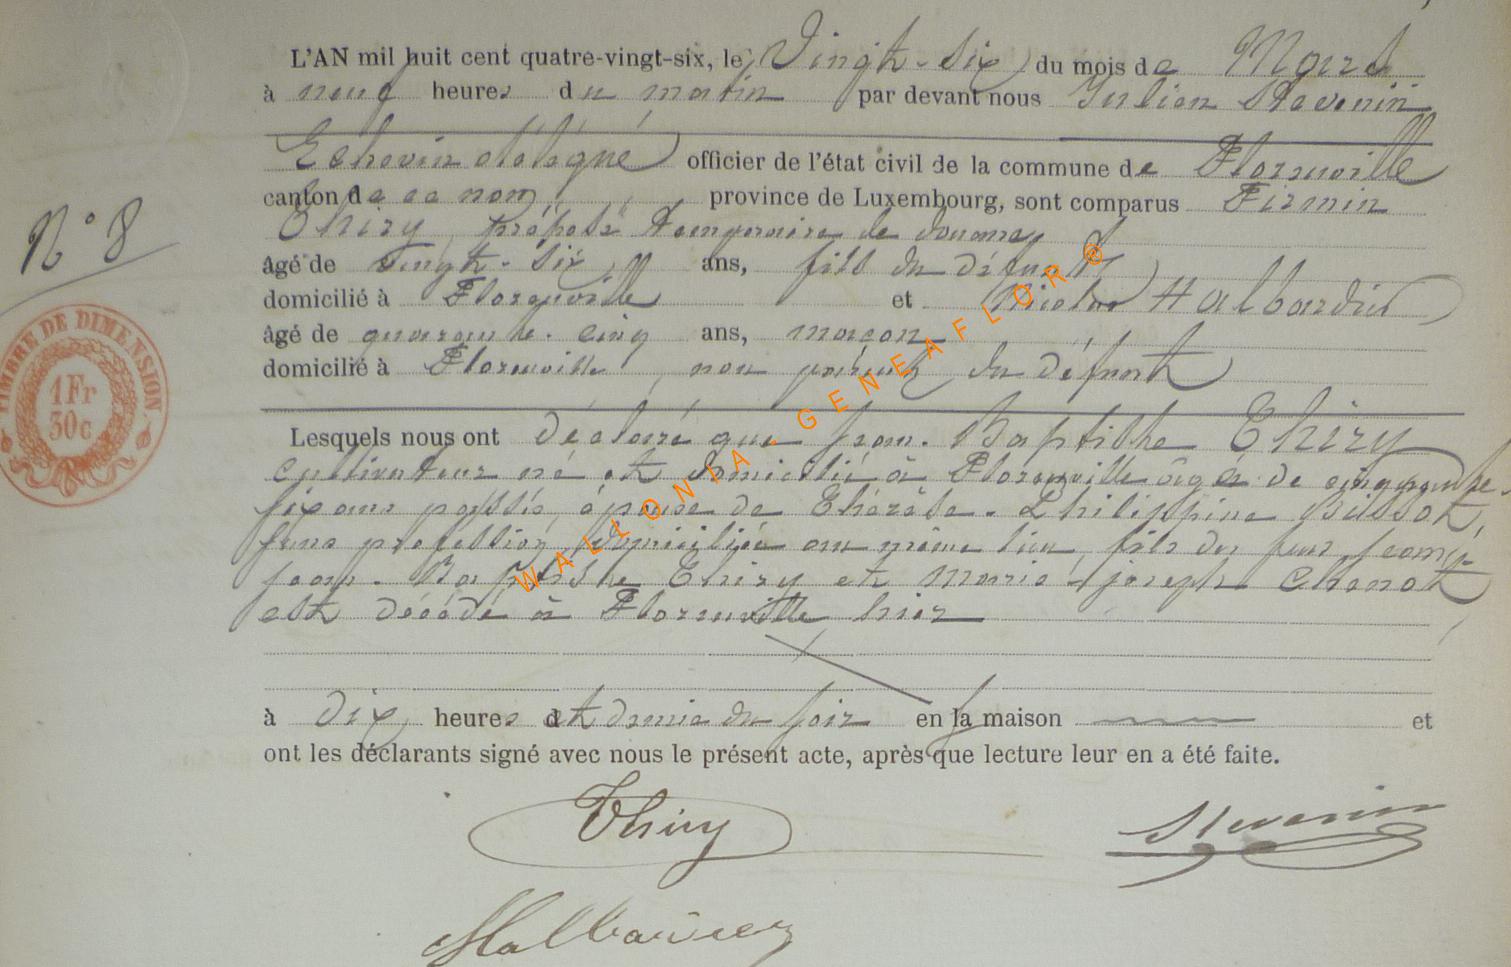 L'AN mil huit cent quatre-vingt-six, le Vingt-six du mois de Mars
à neuf heures du matin par devant nous Julien Stevenin
Echevin délégué officier de l'état civil de la commune de Florenville
canton de ce nom, province de Luxembourg, sont comparus Firmin
Thiry, préposé temporaire de douane,
âgé de Vingt-six ans, fils du défunt
domicilié à Florenville et Nicolas Halbardier
âgé de quarante-cinq ans, maçon
domicilié à Florenville, non parent du défunt
Lesquels nous ont déclaré que Jean-Baptiste Thiry
cultivateur né et domicilié à Florenville âgé de cinquante-
six ans passés, époux de Thérèse-Philippine Bussot,
sans profession, domiciliée au même lieu, fils des feus
Jean-Baptiste Thiry et Marie-Joseph Chenot,
est décédé à Florenville hier
à dix heures et demie du soir en sa maison et
ont les déclarants signé avec nous le présent acte, après que lecture leur en a été faite.
Thiry
Stevenin
Halbardier
N° 8
TIMBRE DE DIMENSION
1Fr
30c
WALLONIA - GENEAFLOR ®